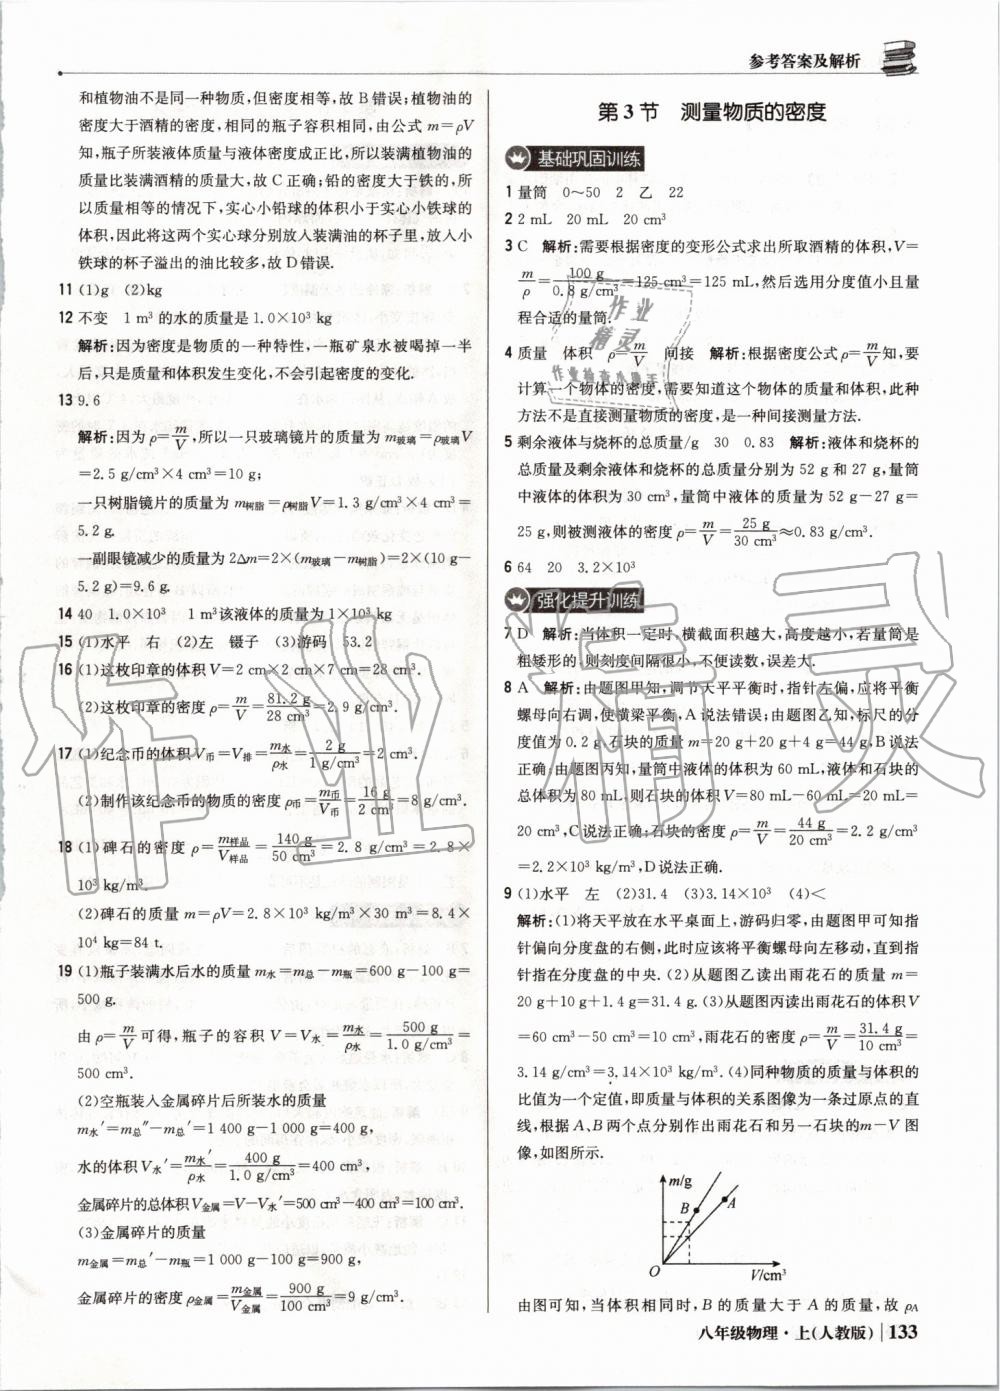 参考答案及解析
和植物油不是同一种物质,但密度相等,故B错误;植物油的
密度大于酒精的密度,相同的瓶子容积相同,由公式m=ρV
知,瓶子所装液体质量与液体密度成正比,所以装满植物油的
质量比装满酒精的质量大,故C正确;铅的密度大于铁的,所
以质量相等的情况下,实心小铅球的体积小于实心小铁球的
体积,因此将这两个实心球分别放入装满油的杯子里,放入小
铁球的杯子溢出的油比较多,故D错误.
11 (1)g (2)kg
12 不变 1 m³的水的质量是1.0×10³ kg
解析:因为密度是物质的一种特性,一瓶矿泉水被喝掉一半
后,只是质量和体积发生变化,不会引起密度的变化.
13 9.6
解析:因为ρ=m/V,所以一只玻璃镜片的质量为m玻璃=ρ玻璃V
=2.5 g/cm³×4 cm³=10 g;
一只树脂镜片的质量为m树脂=ρ树脂V=1.3 g/cm³×4 cm³=
5.2 g.
一副眼镜减少的质量为2Δm=2×(m玻璃-m树脂)=2×(10 g-
5.2 g)=9.6 g.
14 40 1.0×10³ 1 m³该液体的质量为1×10³ kg
15 (1)水平 右 (2)左 镊子 (3)游码 53.2
16 (1)这枚印章的体积V=2 cm×2 cm×7 cm=28 cm³.
(2)这枚印章的密度ρ=m/V=81.2 g/28 cm³=2.9 g/cm³.
17 (1)纪念币的体积V币=V排=m水/ρ水=2 g/1 g/cm³=2 cm³.
(2)制作该纪念币的物质的密度ρ币=m币/V币=16 g/2 cm³=8 g/cm³.
18 (1)碑石的密度ρ=m样品/V样品=140 g/50 cm³=2.8 g/cm³=2.8×
10³ kg/m³.
(2)碑石的质量m=ρV=2.8×10³ kg/m³×30 m³=8.4×
10⁴ kg=84 t.
19 (1)瓶子装满水后水的质量m水=m总-m瓶=600 g-100 g=
500 g.
由ρ=m/V可得,瓶子的容积V=V水=m水/ρ水=500 g/1.0 g/cm³=
500 cm³.
(2)空瓶装入金属碎片后所装水的质量
m水′=m总″-m总′=1 400 g-1 000 g=400 g,
水的体积V水′=m水′/ρ水=400 g/1.0 g/cm³=400 cm³,
金属碎片的总体积V金属=V-V水′=500 cm³-400 cm³=100 cm³.
(3)金属碎片的质量
m金属=m总′-m瓶=1 000 g-100 g=900 g,
金属碎片的密度ρ金属=m金属/V金属=900 g/100 cm³=9 g/cm³.
第3节 测量物质的密度
基础巩固训练
1 量筒 0～50 2 乙 22
2 2 mL 20 mL 20 cm³
3 C 解析:需要根据密度的变形公式求出所取酒精的体积,V=
m/ρ=100 g/0.8 g/cm³=125 cm³=125 mL,然后选用分度值小且量
程合适的量筒.
4 质量 体积 ρ=m/V 间接 解析:根据密度公式ρ=m/V知,要
计算一个物体的密度,需要知道这个物体的质量和体积,此种
方法不是直接测量物质的密度,是一种间接测量方法.
5 剩余液体与烧杯的总质量/g 30 0.83 解析:液体和烧杯的
总质量及剩余液体和烧杯的总质量分别为52 g和27 g,量筒
中液体的体积为30 cm³,量筒中液体的质量为52 g-27 g=
25 g,则被测液体的密度ρ=m/V=25 g/30 cm³≈0.83 g/cm³.
6 64 20 3.2×10³
强化提升训练
7 D 解析:当体积一定时,横截面积越大,高度越小,若量筒是
粗矮形的,则刻度间隔很小,不便读数,误差大.
8 A 解析:由题图甲知,调节天平平衡时,指针左偏,应将平衡
螺母向右调,使横梁平衡,A说法错误;由题图乙知,标尺的分
度值为0.2 g,石块的质量m=20 g+20 g+4 g=44 g,B说法
正确;由题图丙知,量筒中液体的体积为60 mL,液体和石块的
总体积为80 mL,则石块的体积V=80 mL-60 mL=20 mL=
20 cm³,C说法正确;石块的密度ρ=m/V=44 g/20 cm³=2.2 g/cm³
=2.2×10³ kg/m³,D说法正确.
9 (1)水平 左 (2)31.4 (3)3.14×10³ (4)<
解析:(1)将天平放在水平桌面上,游码归零,由题图甲可知指
针偏向分度盘的右侧,此时应该将平衡螺母向左移动,直到指
针指在分度盘的中央.(2)从题图乙读出雨花石的质量m=
20 g+10 g+1.4 g=31.4 g.(3)从题图丙读出雨花石的体积V
=60 cm³-50 cm³=10 cm³,雨花石的密度ρ=m/V=31.4 g/10 cm³=
3.14 g/cm³=3.14×10³ kg/m³.(4)同种物质的质量与体积的
比值为一个定值,即质量与体积的关系图像为一条过原点的直
线,根据A、B两个点分别作出雨花石和另一石块的m-V图
像,如图所示.
m/g
B
A
O
V/cm³
由图可知,当体积相同时,B的质量大于A的质量,故ρA
八年级物理·上(人教版) 133
作业精灵
作业检查小助手
作业精灵